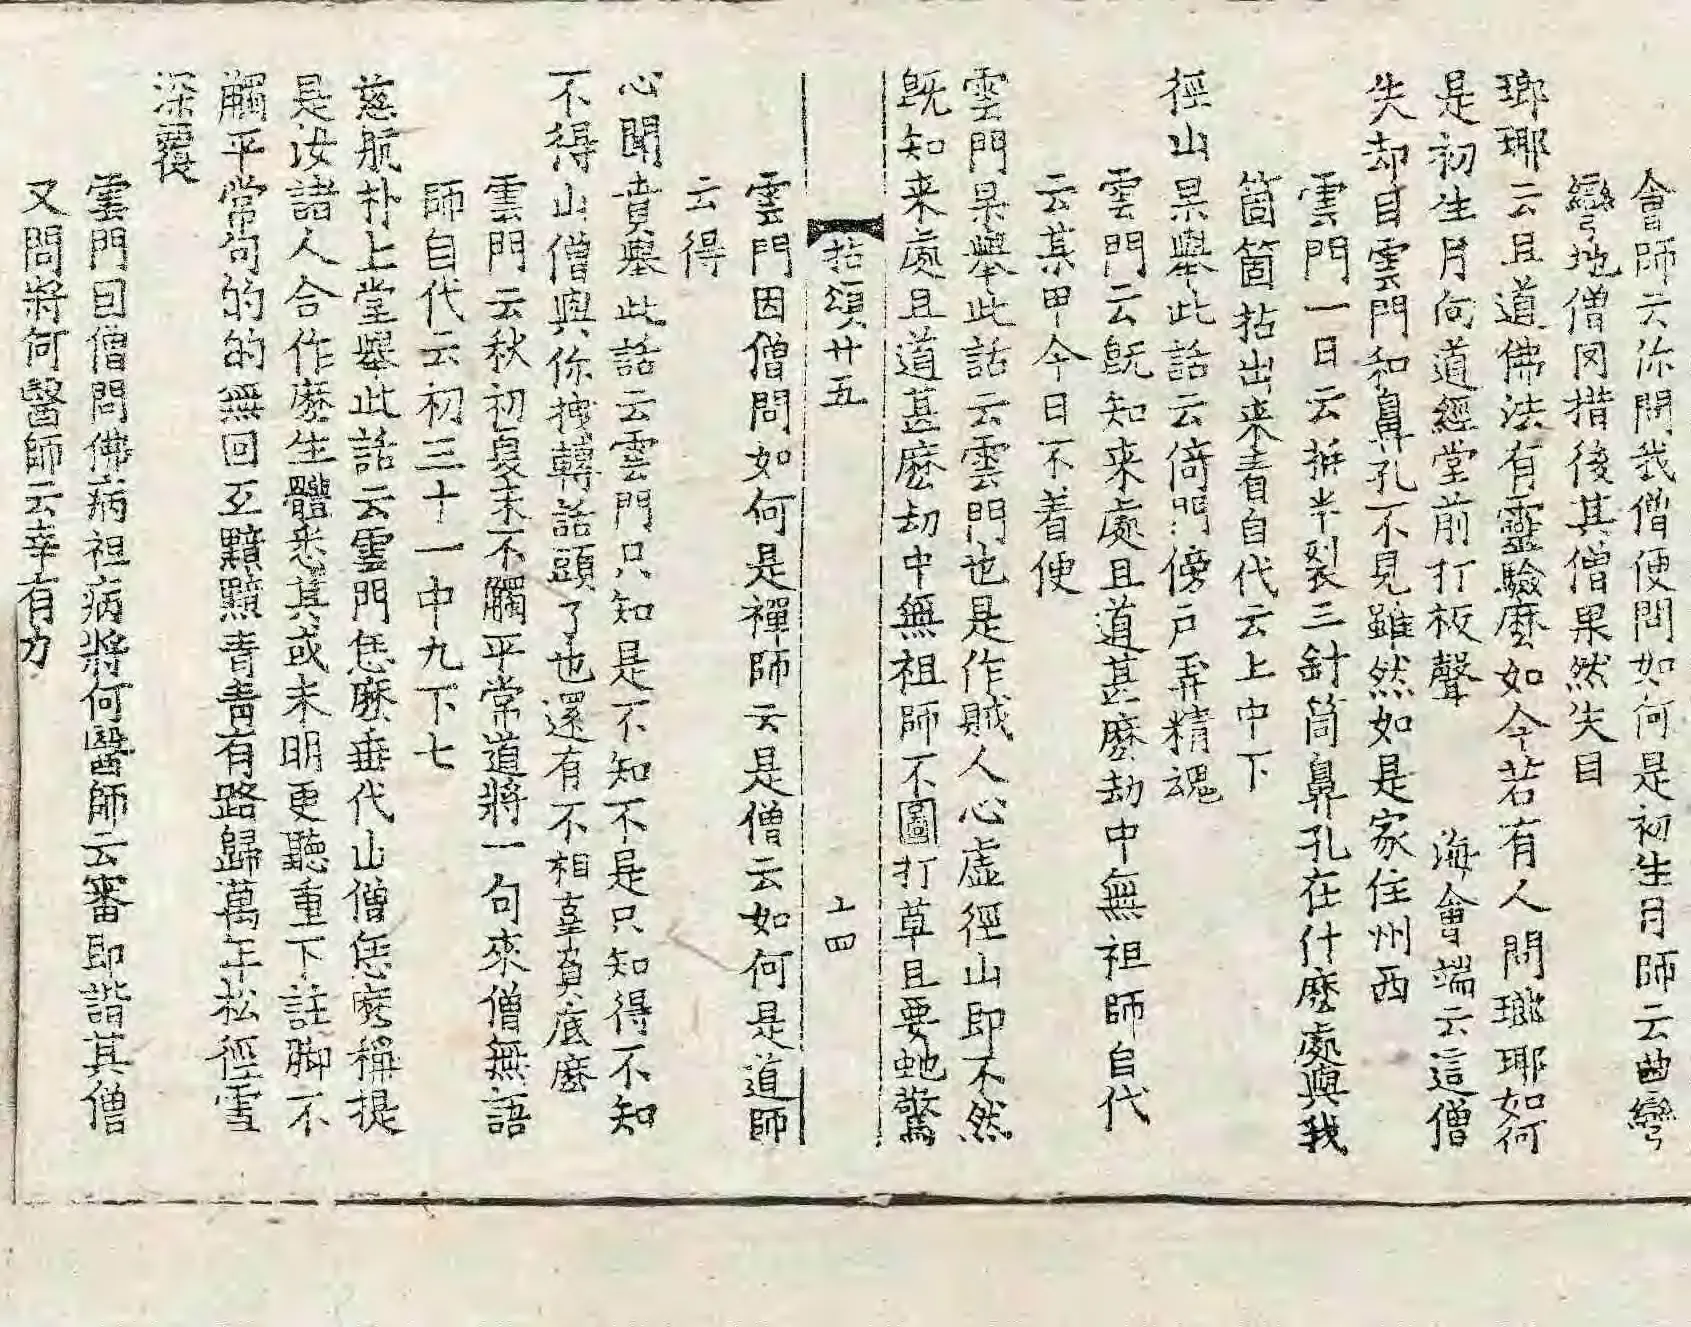 會師云你問我僧便問如何是初生月師云曲彎
彎地僧罔措後其僧果然失目
瑯瑘云且道佛法有靈驗麽如今若有人問瑯瑘如何
是初生月向道經堂前打板聲　海會端云這僧
失却目雲門和鼻孔不見雖然如是家住州西
雲門一日云拆半裂三針筒鼻孔在什麽處與我
箇箇拈出来看自代云上中下
徑山杲舉此話云倚門傍戸弄精魂
雲門云旣知来處且道甚麽劫中無祖師自代
云某甲今日不着便
雲門杲舉此話云雲門也是作賊人心虛徑山即不然
旣知来處且道甚麽劫中無祖師不圖打草且要虵驚
拈頌廿五　十四
雲門因僧問如何是禪師云是僧云如何是道師
云得
心聞賁舉此話云雲門只知是不知不是只知得不知
不得山僧與你拽轉話頭了也還有不相辜負底麽
雲門云秋初夏末不觸平常道將一句來僧無語
師自代云初三十一中九下七
慈航朴上堂舉此話云雲門恁麽垂代山僧恁麽稱提
是汝諸人合作麽生體悉其或未明更聽重下註脚不
觸平常句的的的無回互黯黯青青有路歸萬年松徑雪
深覆
雲門因僧問佛病祖病將何醫師云審即諧其僧
又問將何醫師云幸有力